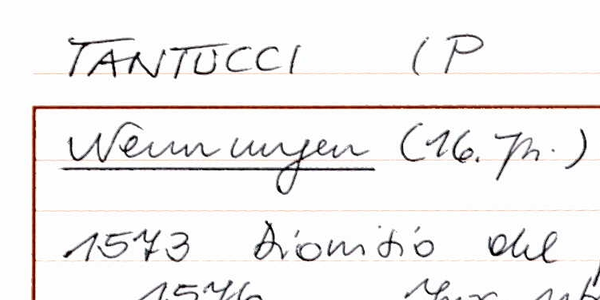 TANTUCCI (P
Nennungen (16. Jh.)
1573 Dionisio del
1576